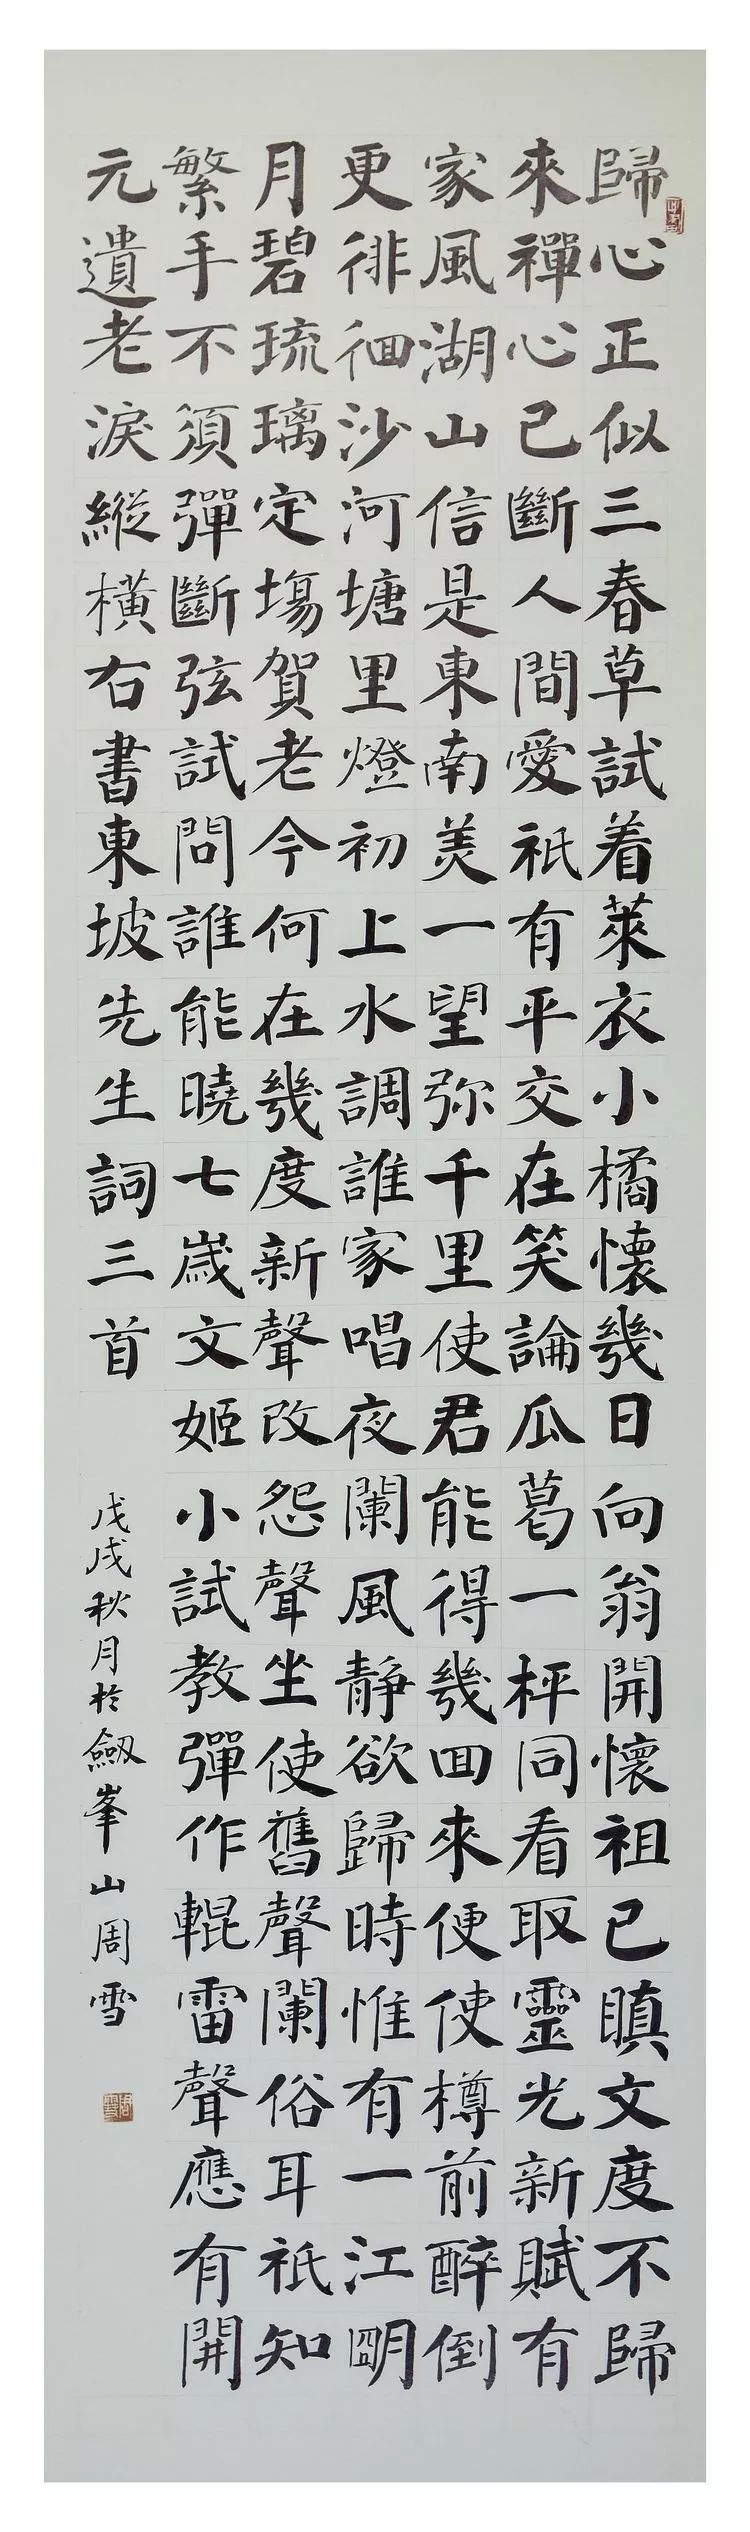 歸心正似三春草試着萊衣小橘懷幾日向翁開懷祖已瞋文度不歸
來禪心已斷人間愛衹有平交在笑論瓜葛一枰同看取靈光新賦有
家風湖山信是東南美一望弥千里使君能得幾回來便使樽前醉倒
更徘徊沙河塘里燈初上水調誰家唱夜闌風靜欲歸時惟有一江明
月碧琉璃定場賀老今何在幾度新聲改怨聲坐使舊聲闌俗耳衹知
繁手不須彈斷弦試問誰能曉七歲文姬小試教彈作輥雷聲應有開
元遺老淚縱橫右書東坡先生詞三首
戊戌秋月於劔峯山周雪